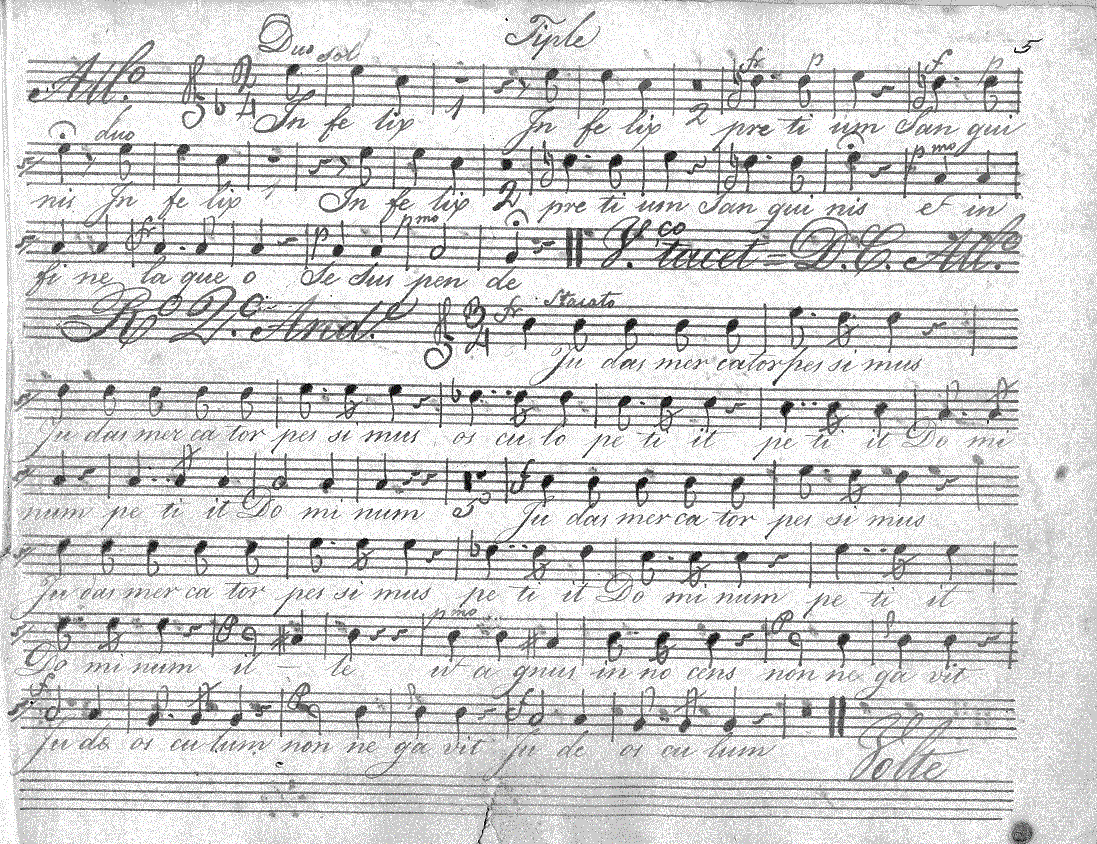 Duo sol Tiple 5
All.o 2 4 fr p f p
In fe lix 1 In fe lix 2 pre ti um San gui
duo pmo
nis In fe lix 1 In fe lix 2 pre ti um San gui nis et in
fr p pmo V.co tacet = D.C. All.o
fi ne la que o Se sus pen de
R.o 2.o And.e 3 4 fr Stacato
Ju das mer cator pes si mus
Ju das mer ca tor pes si mus os cu lo pe ti it pe ti it Do mi
f
num pe ti it Do mi num 5 Ju das mer ca tor pes si mus
Ju das mer ca tor pes si mus pe ti it Do mi num pe ti it
p pmo p
Do mi num il - le ut a gnus in no cens non ne ga vit
f p f
Ju de os cu lum non ne ga vit Ju de os cu lum
Volte